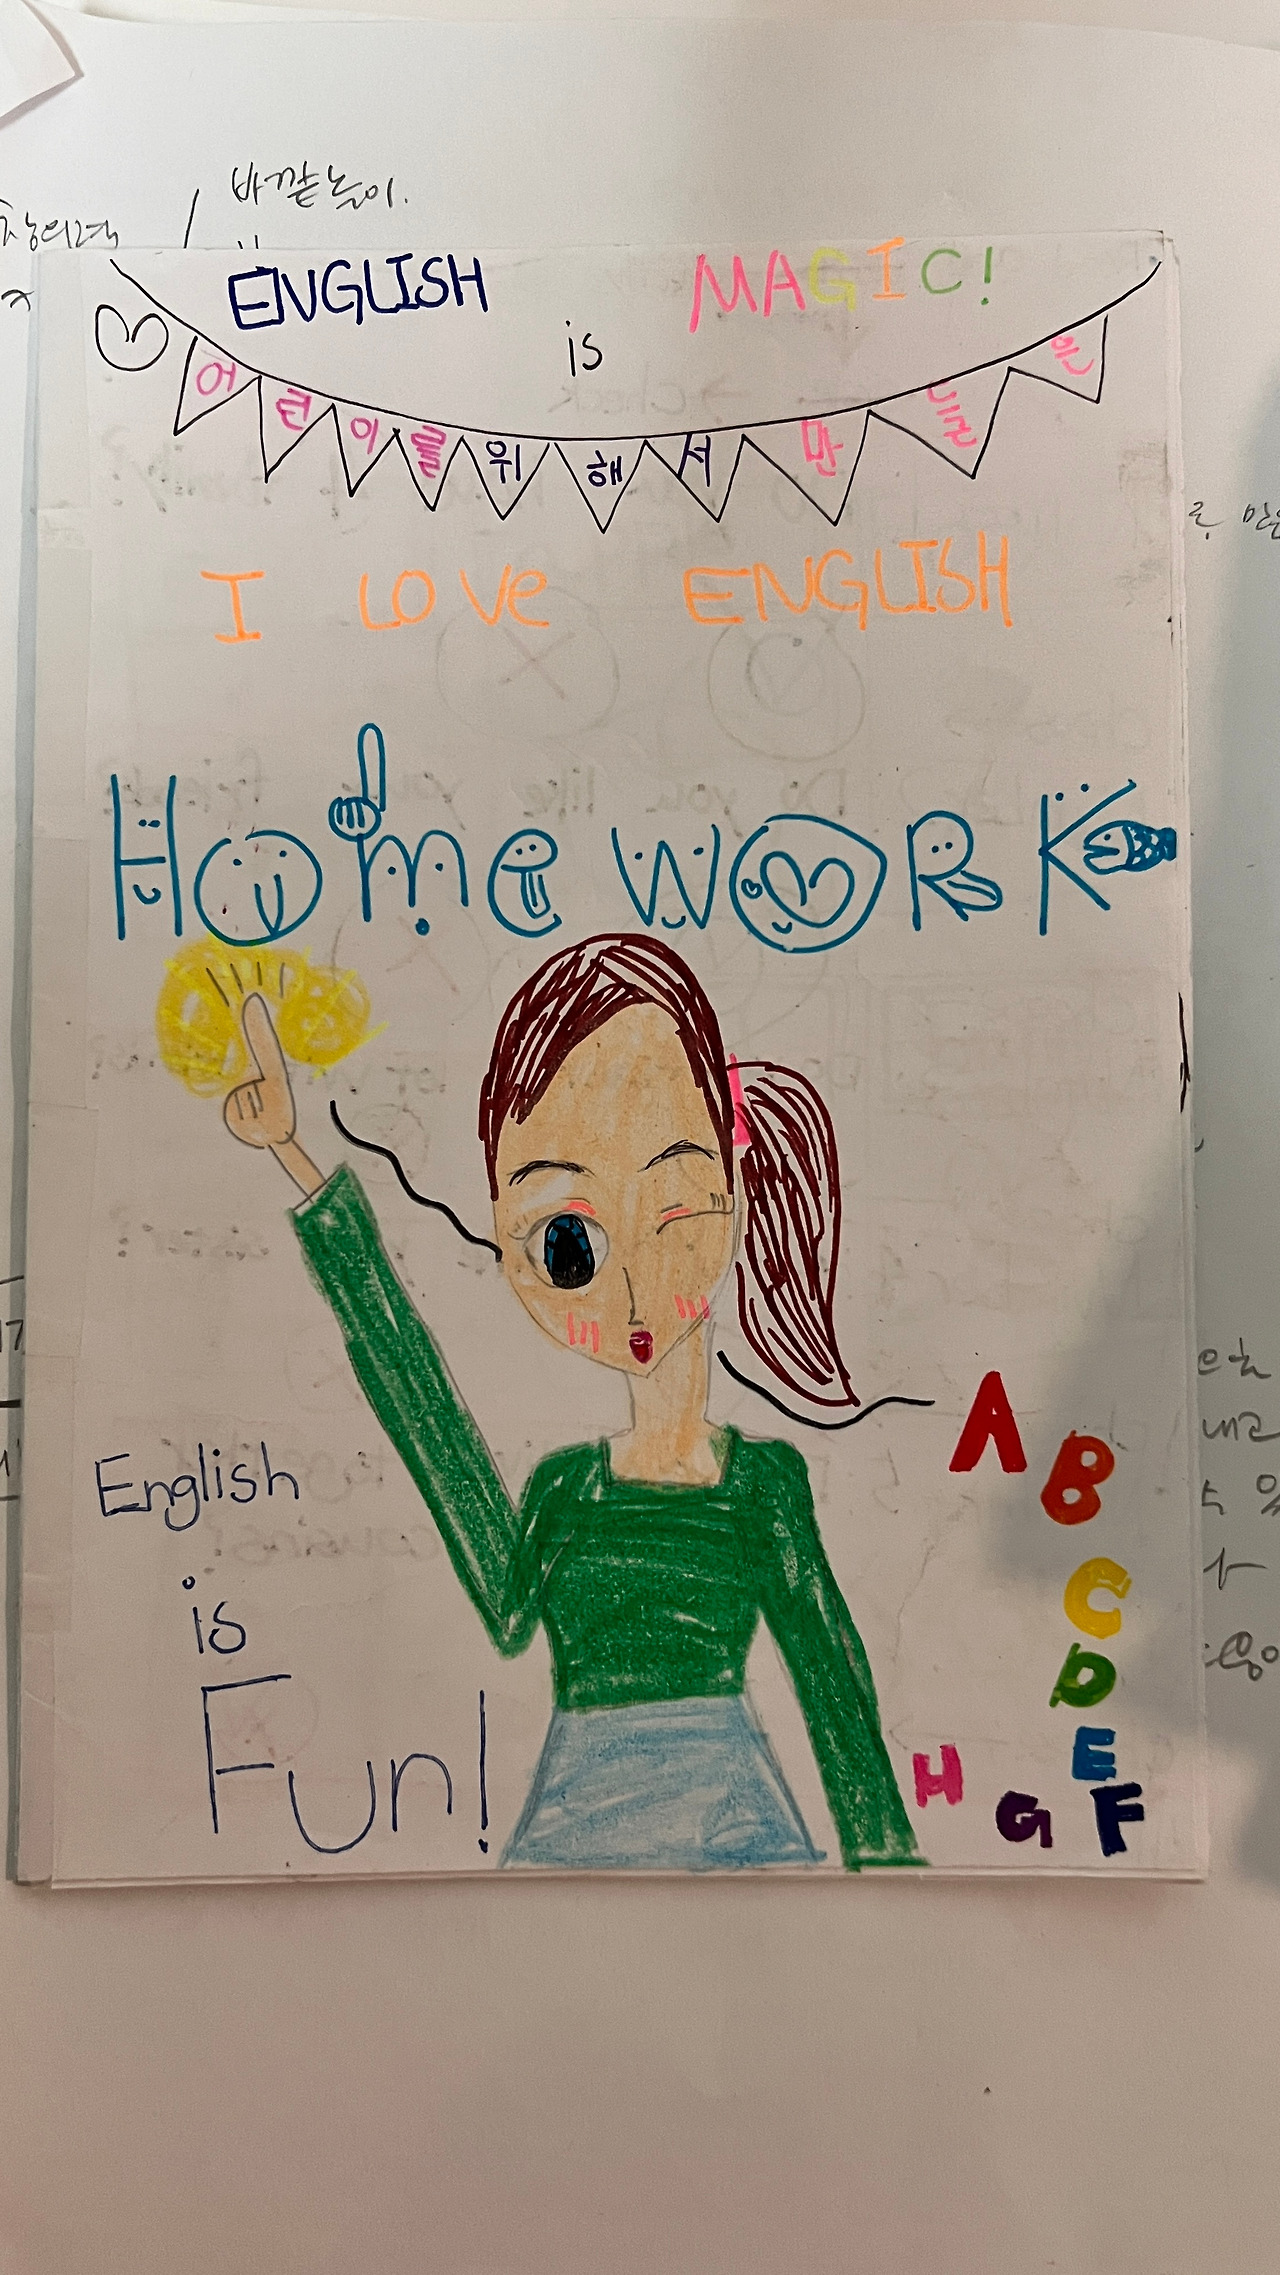 바깥놀이.
ENGLISH is MAGIC!
어린이를위해서만든
I LOVe ENGLISH
HomeworK
A
B
English
C
is
D
Fun!
E
H G F